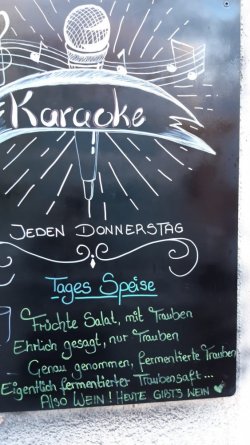 Karaoke
JEDEN DONNERSTAG
Tages Speise
Früchte Salat, mit Trauben
Ehrlich gesagt, nur Trauben
Genau genommen, fermentierte Trauben
Eigentlich fermentierter Traubensaft...
ALSO WEIN! HEUTE GIBTS WEIN